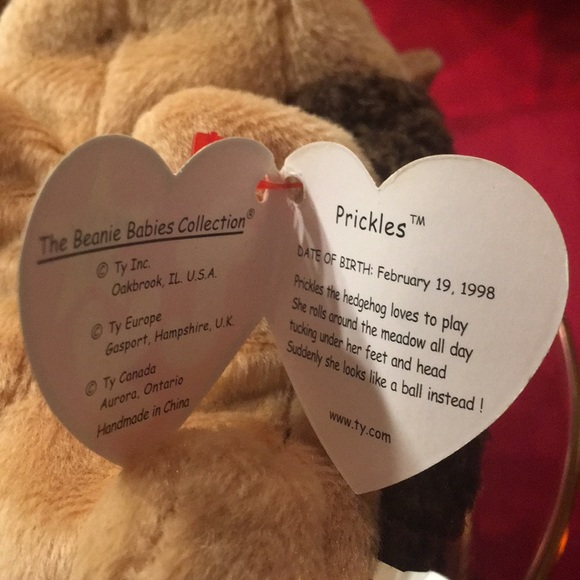 The Beanie Babies Collection®
© Ty Inc.
Oakbrook, IL. U.S.A.
© Ty Europe
Gasport, Hampshire, U.K.
© Ty Canada
Aurora, Ontario
Handmade in China
Prickles™
DATE OF BIRTH: February 19, 1998
Prickles the hedgehog loves to play
She rolls around the meadow all day
tucking under her feet and head
Suddenly she looks like a ball instead !
www.ty.com